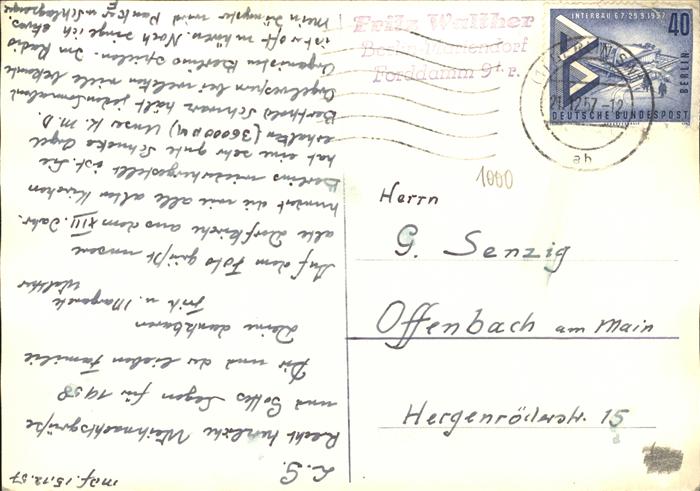 mdf. 15.12.57
L. G.
Recht herzliche Weihnachtsgrüße
und Gottes Segen für 1958
Dir und der lieben Familie
Deine dankbaren
Fritz u. Margarete
Walther
Auf dem Foto grüßt unsere
alte Dorfkirche aus dem XIII. Jahr-
hundert die wie alle alten Kirchen
Berlins wiederhergestellt ist. Sie
hat eine sehr gute Schuke Orgel
erhalten (36000 DM) Unser K. M. D.
Berthold Schwarz hält jeden Sonnabend
Orgelvespern bei welchen viele bekannte
Organisten Berlins spielen. Im Radio
ist er oft zu hören. Noch singe ich etwas.
Mein Jüngster wird Pankow u. Schlagzeuger
Fritz Walther
Berlin-Mariendorf
Forddamm 9 t. r.
INTERBAU 6.7.-29.9.1957
40
BERLIN
DEUTSCHE BUNDESPOST
21.12.57-12
ab
1000
Herrn
G. Senzig
Offenbach am Main
Hergenröderstr. 15